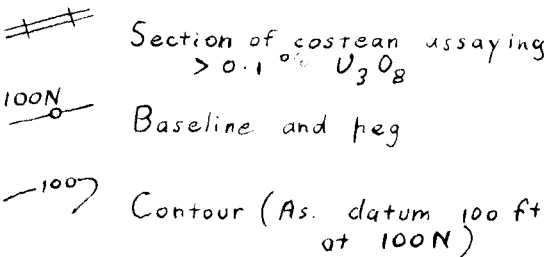 Section of costean assaying
> 0.1 % U3O8
100N
Baseline and peg
100
Contour (As. datum 100 ft
at 100N)